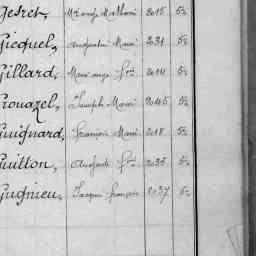 Gesret, Mie ange Mathurin 2015 5c
Gicquel, Augustin Marie 2031 5c
Gillard, Marie ange Fois 2014 5c
Grouazel, Joseph Marie 2045 5c
Guignard, François Marie 2018 5c
Guitton, Auguste Fois 2036 5c
Gugnieu, Jacques François 2037 5c